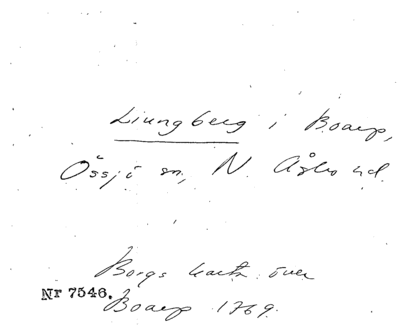 Ljungberg i Boarp,
Össjö sn, N. Åsbo hd.
Borgs karta över
Nr 7546.
Boarp 1769.